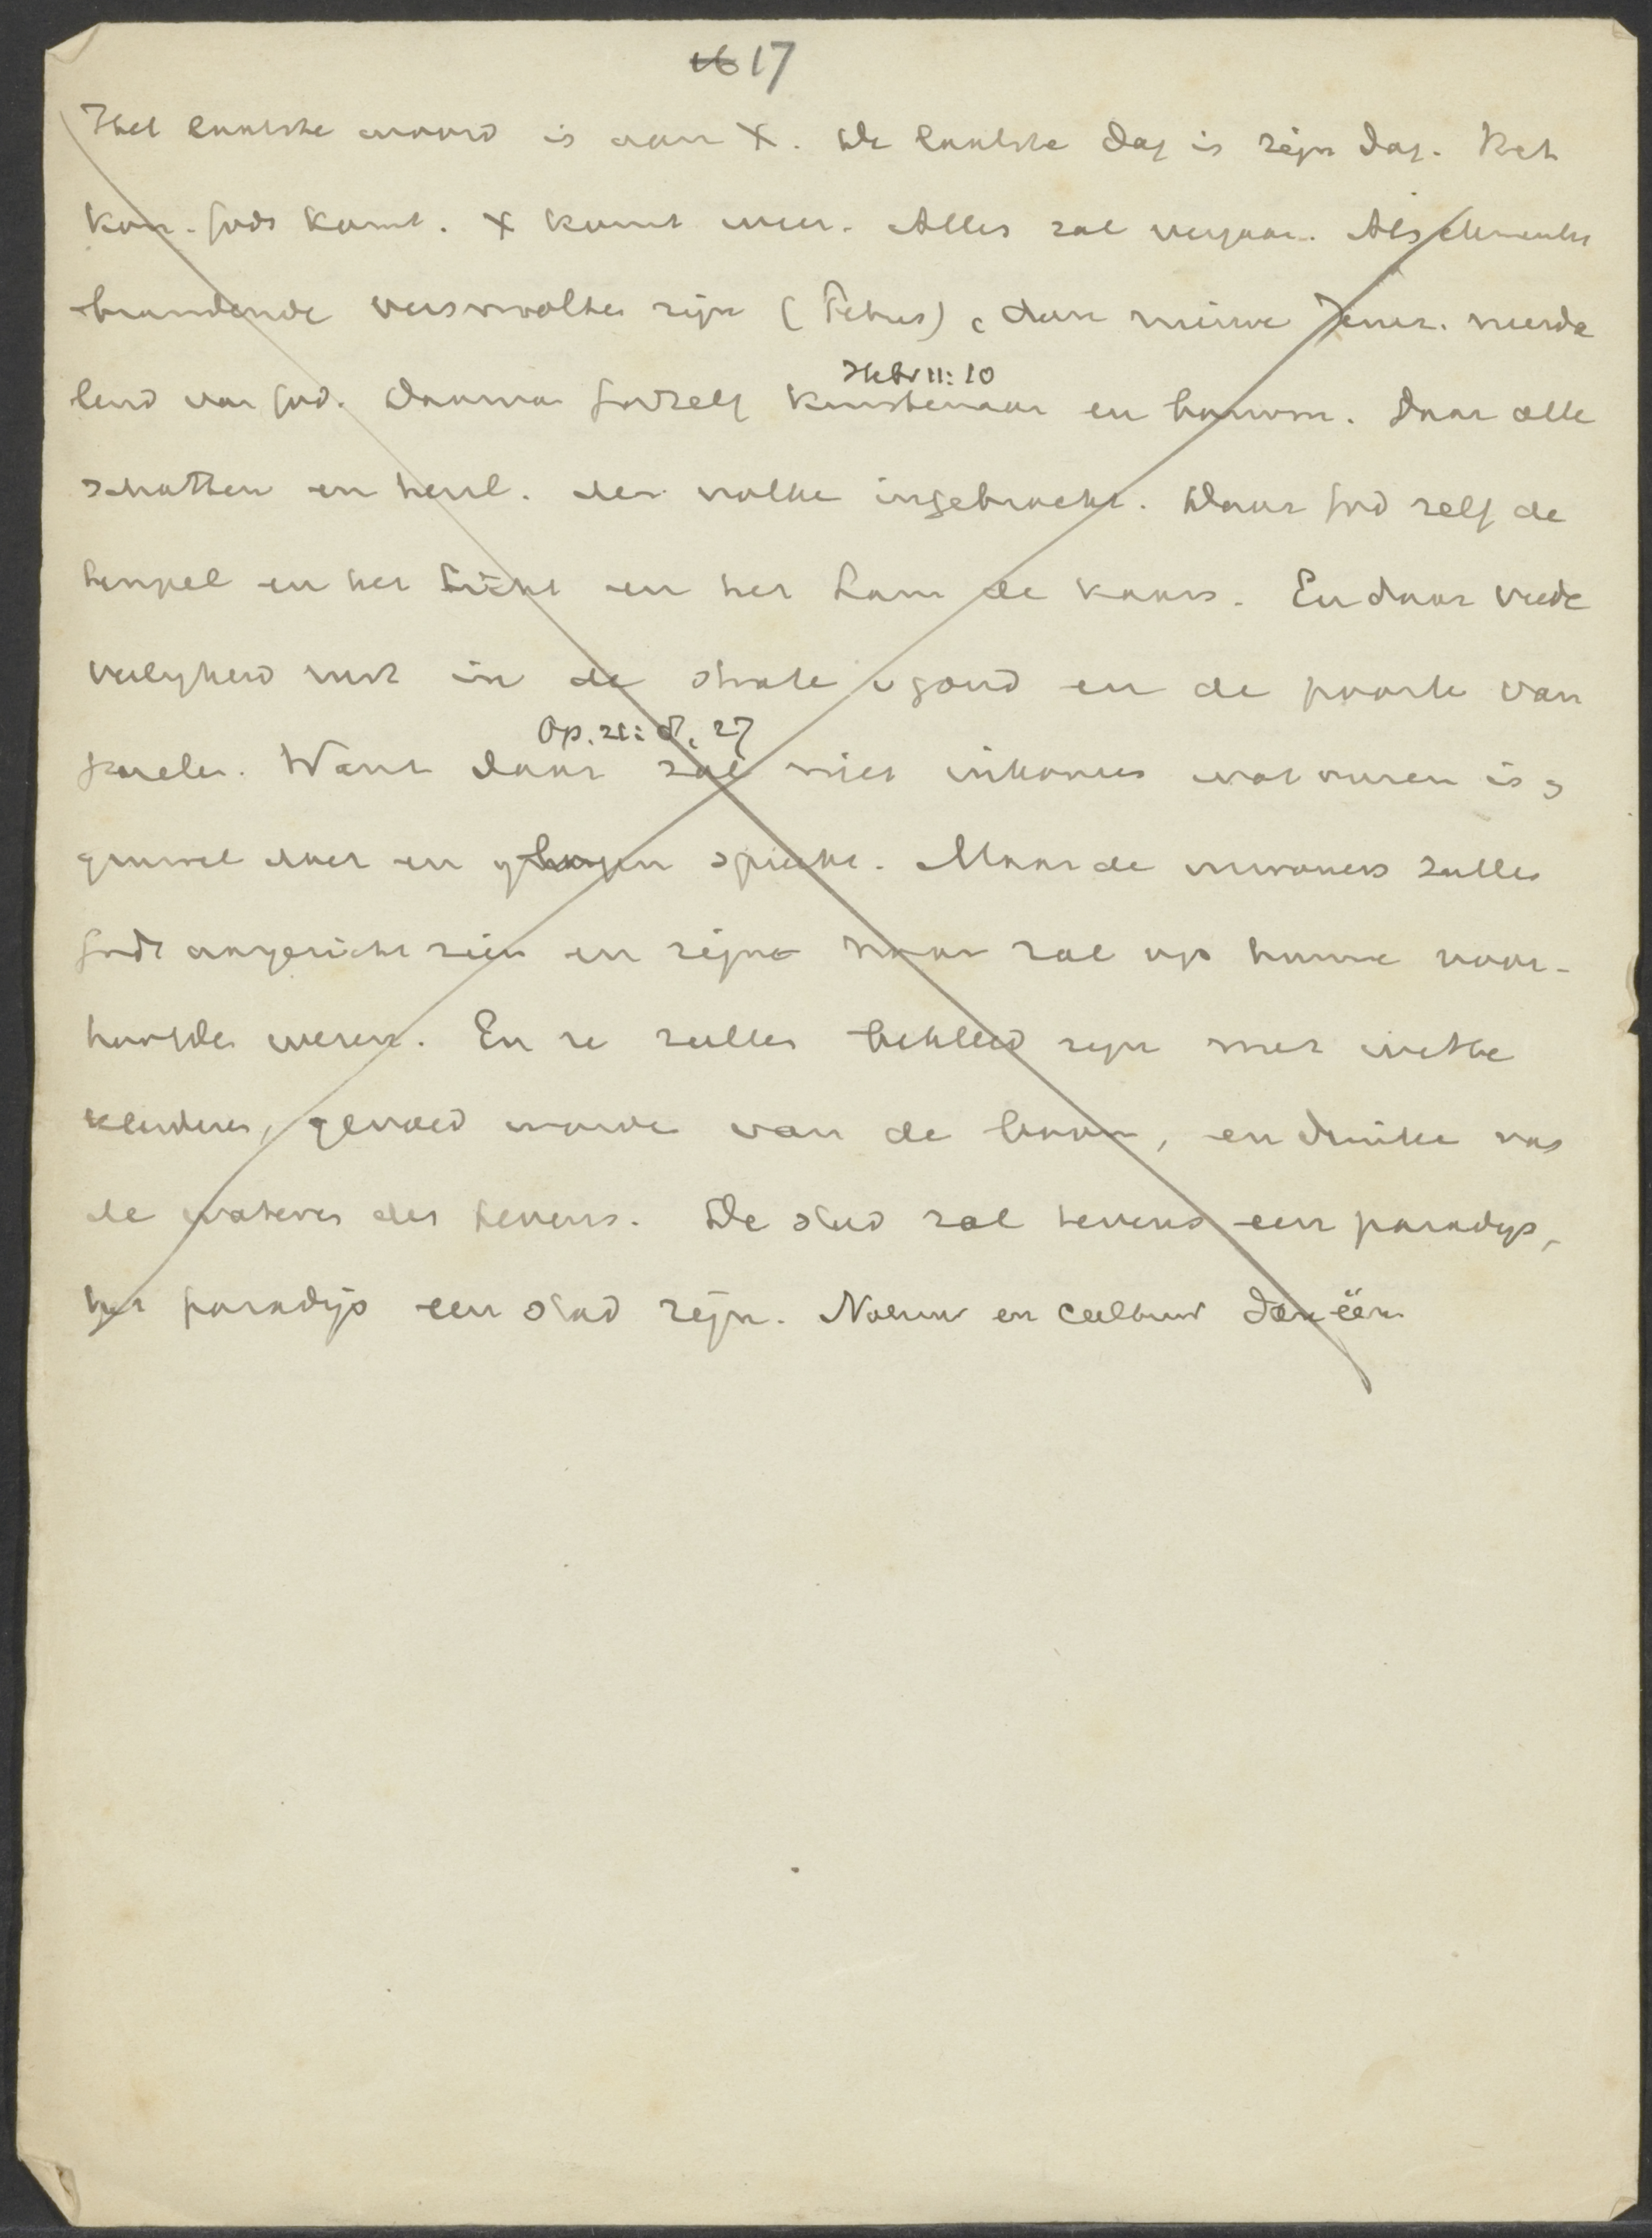 16 17
Het laatste woord is aan X. De laatste dag is zijn dag. Het
kon. Gods komt. X komt weer. Alles zal vergaan. Als elementen
brandende versmolten zijn (Petrus), dan nieuwe Jeruz. neerda
lend van God. Daarvan God zelf kunstenaar en bouwm. Daar alle
Hebr 11:10
schatten en heerl. der volken ingebracht. Daar God zelf de
tempel en het licht en het Lam de kaars. En daar vrede
veiligheid rust in de straten v goud en de poorten van
paarlen. Want daar zal niet inkomen wat onrein is,
Op. 21: 8, 27
gruwel doet en spreekt. Maar de inwoners zullen
Gods aangezicht zien en zijne naam zal op hunne voor-
hoofden wezen. En ze zullen bekleed zijn met witte
klederen, gevoed worden van de boom, en drinken van
de wateren des levens. De stad zal tevens een paradijs,
het paradijs een stad zijn. Natuur en cultuur dan één